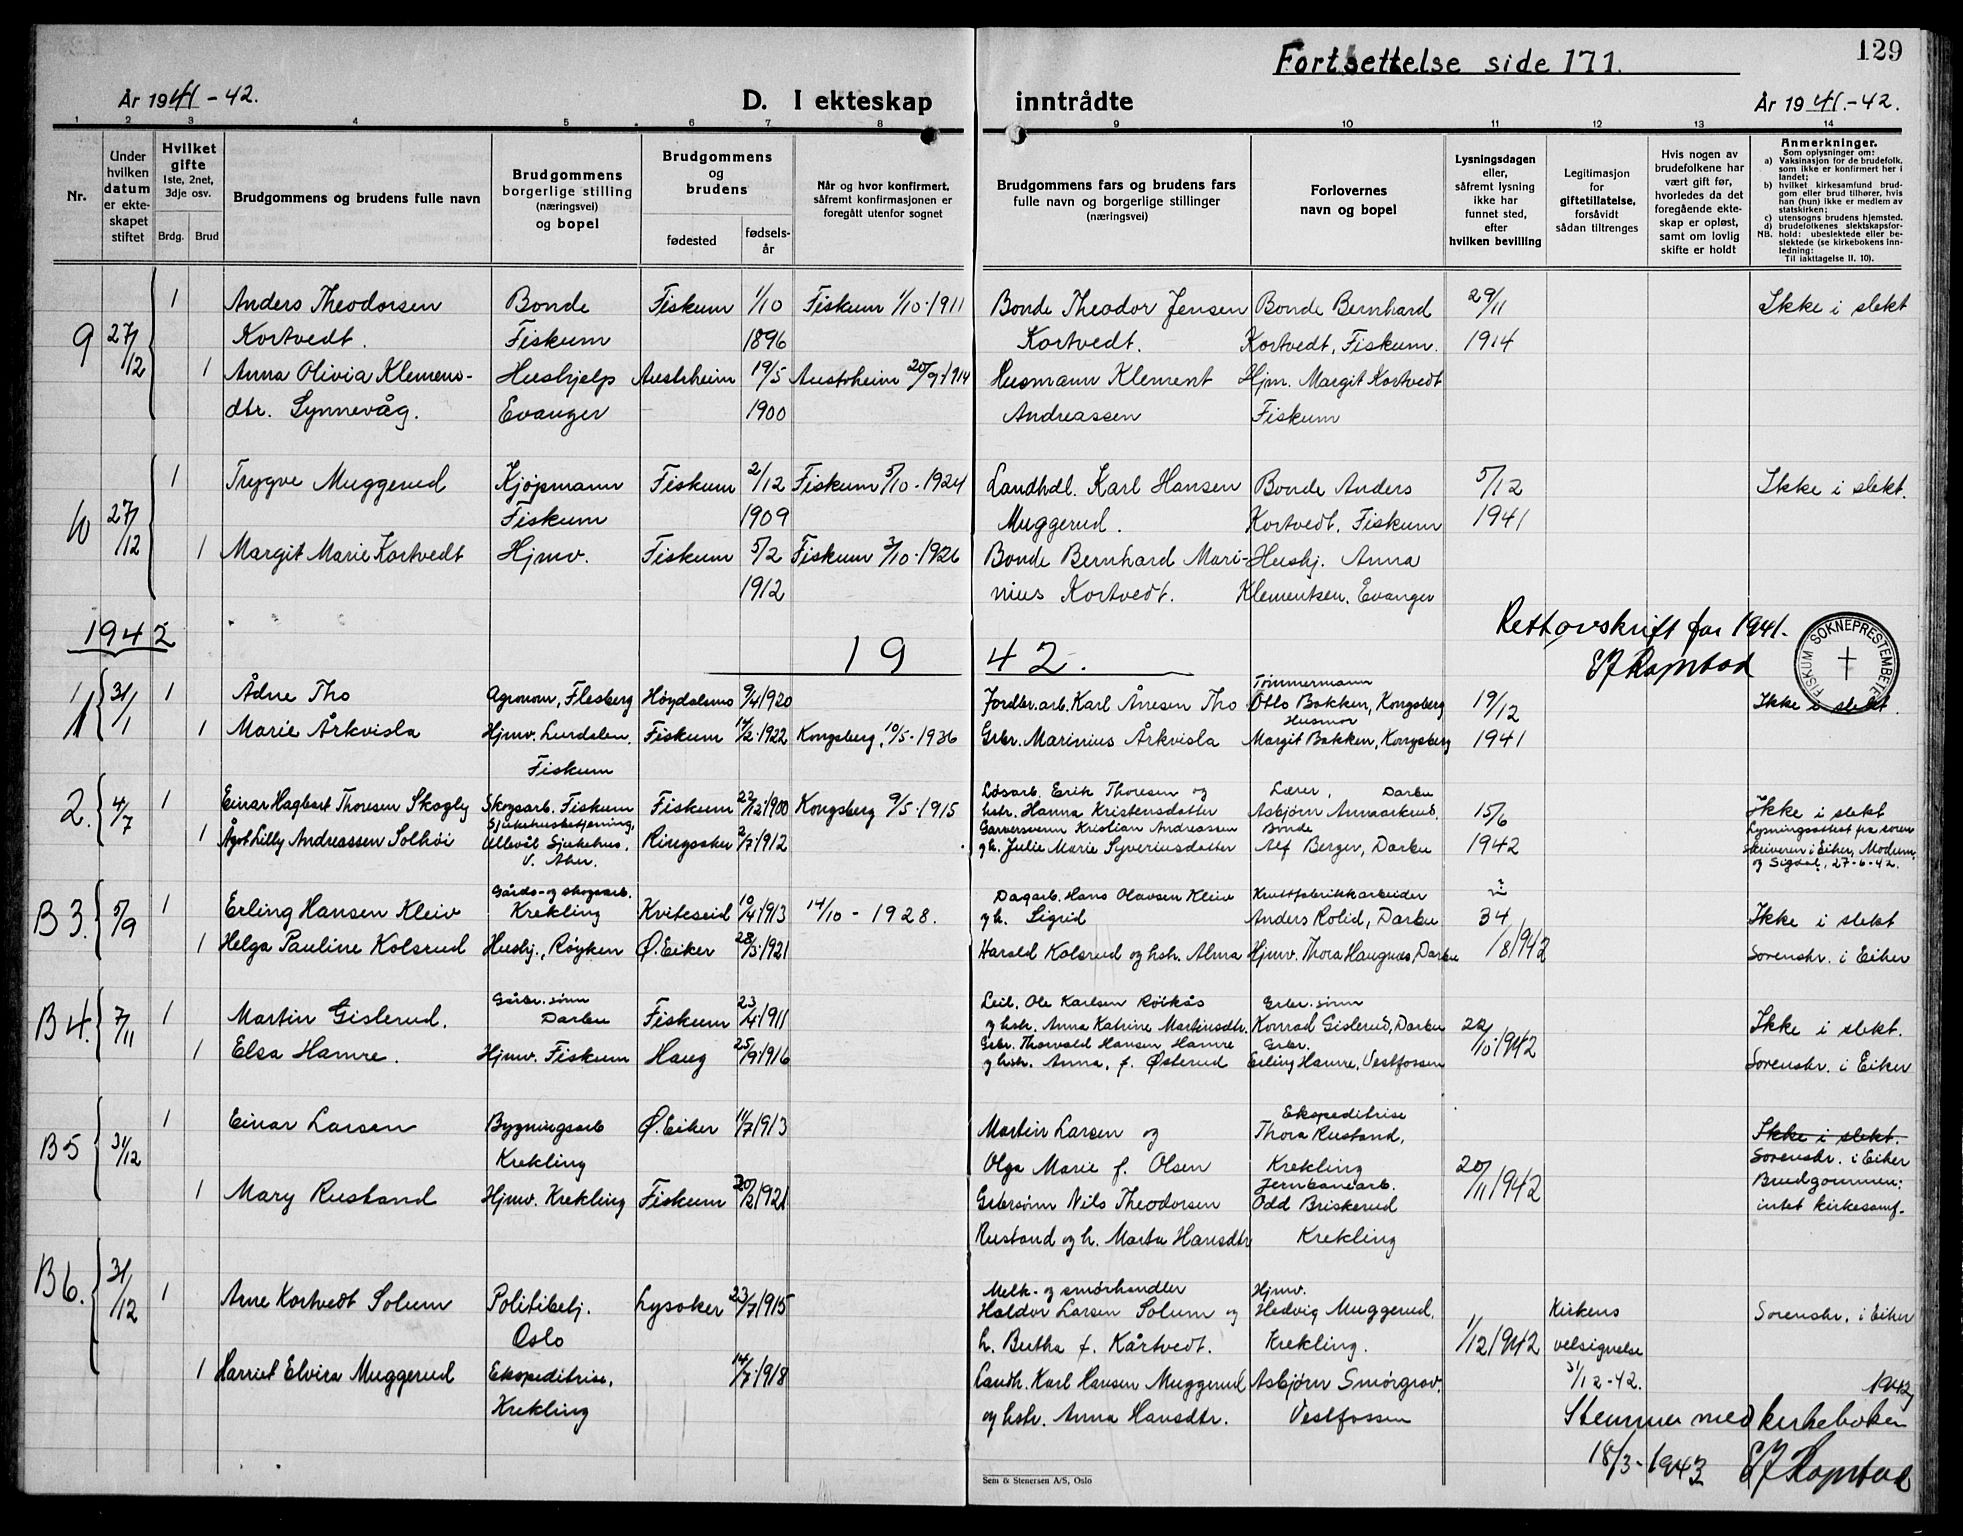 Fortsettelse side 171.
129
År 1941-42.
D. I ekteskap inntrådte
År 1941.-42.
1 2 3 4 5 6 7 8 9 10 11 12 13 14
Nr.
Under hvilken datum er ekteskapet stiftet
Hvilket gifte
1ste, 2net, 3dje osv.
Brdg. Brud
Brudgommens og brudens fulle navn
Brudgommens borgerlige stilling (næringsvei) og bopel
Brudgommens og brudens
fødested
fødselsår
Når og hvor konfirmert, såfremt konfirmasjonen er foregått utenfor sognet
Brudgommens fars og brudens fars fulle navn og borgerlige stillinger (næringsvei)
Forlovernes navn og bopel
Lysningsdagen eller, såfremt lysning ikke har funnet sted, efter hvilken bevilling
Legitimasjon for giftetillatelse, forsåvidt sådan tiltrenges
Hvis nogen av brudefolkene har vært gift før, hvorledes da det foregående ekteskap er opløst, samt om lovlig skifte er holdt
Anmerkninger.
Som oplysninger om:
a) Vaksinasjon for de brudefolk, som ikke er konfirmert her i landet;
b) hvilket kirkesamfund brudgom eller brud tilhører, hvis han (hun) ikke er medlem av statskirken;
c) utensogns brudens hjemsted.
d) brudefolkenes slektskapsforhold: ubeslektede eller beslektede (se kirkebokens innledning:
NB. Til iakttagelse II. 10).
9 27/12 1 Anders Theodorsen Bonde Fiskum 1/10 Fiskum 1/10-1911 Bonde Theodor Jensen Bonde Bernhard 29/11 Ikke i slekt
Kortvedt. Fiskum 1896 Kortvedt. Kortvedt, Fiskum. 1914
1 Anna Olivia Klemens- Hushjelp Austrheim 19/5 Austrheim 20/9-1914 Husmann Klement Hjm. Margit Kortvedt
dtr. Synnevåg. Evanger 1900 Andreassen Fiskum
10 27/12 1 Trygve Muggerud Kjøpmann Fiskum 2/12 Fiskum 5/10-1924 Landhdl. Karl Hansen Bonde Anders 5/12 Ikke i slekt.
Fiskum 1909 Muggerud. Kortvedt, Fiskum 1941
1 Margit Marie Kortvedt Hjmv. Fiskum 5/2 Fiskum 3/10-1926 Bonde Bernhard Mari- Hushj. Anna
1912 nius Kortvedt. Klementsen, Evanger
1942
1942.
Rett avskrift for 1941.
EJ Ramstad
FISKUM SOKNEPRESTEMBETE
1 31/1 1 Ådne Tho Agronom, Flesberg Høydalsmo 9/4 1920 Jordbr.arb. Karl Ånesen Tho Tømmermann Otto Bakken, Kongsberg 19/12 Ikke i slekt.
1 Marie Årkvisla Hjmv. Lurdalen, Fiskum 14/2.1922 Kongsberg, 10/5-1936 Grbr. Marinius Årkvisla Husmor Margit Bakken, Kongsberg 1941
Fiskum
2. 4/7 1 Einar Hagbart Thoresen Skogly Skogsarb. Fiskum Fiskum 22/12.1900 Kongsberg 9/5-1915 Løsarb. Erik Thoresen og Lærer, Darbu
hstr. Hanna Kristensdatter Asbjørn Annarkrud, 15/6 Ikke i slekt
1 Ågot Lilly Andreassen Solhøi Sjukehusbetjening, Ullevål Sjukehus, V. Aker. Ringsaker 2/7 1912 Garversvenn Kristian Andreassen Bonde Lysningsattest fra soren
og h. Julie Marie Syveriusdatter Alf Berger, Darbu 1942 skriveren i Eiker, Modum og Sigdal, 27-6-42.
B 3. 5/9 1 Erling Hansen Kleiv Gårds- og skogsarb. Krekling Kviteseid 10/4 1913 14/10-1928. Dagarb. Hans Olavsen Kleiv Kruttfabrikkarbeider
og h. Sigrid Anders Rolid, Darbu 34 Ikke i slekt
1 Helga Pauline Kolsrud Hushj., Røyken Ø. Eiker 28/5.1921 Harald Kolsrud og hstr. Alma Hjmv. Thora Haugnæs, Darbu 1/8 1942 Sorenskr. i Eiker
B 4. 7/11 1 Martin Gislerud. Gårbr. sønn Darbu Fiskum 23/4 1911 Leil. Ole Karlsen Röikås Grbr. sønn
og hstr. Anna Katrine Martinsdtr. Konrad Gislerud, Darbu 22/10.1942 Ikke i slekt.
1 Elsa Hamre. Hjmv. Fiskum Haug 25/9 1916 Grbr. Thorvald Hansen Hamre Grbr.
og hstr. Anna, f. Østerud Erling Hamre, Vestfossen Sorenskr. i Eiker
B 5 31/12 1 Einar Larsen Bygningsarb Ø. Eiker 11/7 1913 Martin Larsen og Ekspeditrise Thora Rustand, Ikke i slekt.
Krekling Olga Marie f. Olsen Krekling 20/11 1942 Sorenskr. i Eiker
1 Mary Rustand Hjmv. Krekling Fiskum 20/2 1921 Grbrsønn Nils Theodorsen Jernbanearb. Odd Briskerud Brudgommen:
Rustand og h. Marta Hansdtr Krekling intet kirkesamf.
B 6. 31/12 1 Arne Kortvedt Solum Politibetj. Lysaker 23/7 1915 Melk- og smørhandler Hjmv.
Haldor Larsen Solum og Hedvig Muggerud, Kirkens Sorenskr. i Eiker
Oslo h. Bertha f. Kårtvedt. Krekling. 1/12 1942 velsignelse
1 Harriet Elvira Muggerud Ekspeditrise, 14/7 1918 Landh. Karl Hansen Muggerud Asbjørn Smørgrav, 31/12-42.
Krekling og hstr. Anna Hansdtr. Vestfossen
1942
Stemmer med kirkeboken
18/3-1943 EJ Ramstad
Sem & Stenersen A/S, Oslo